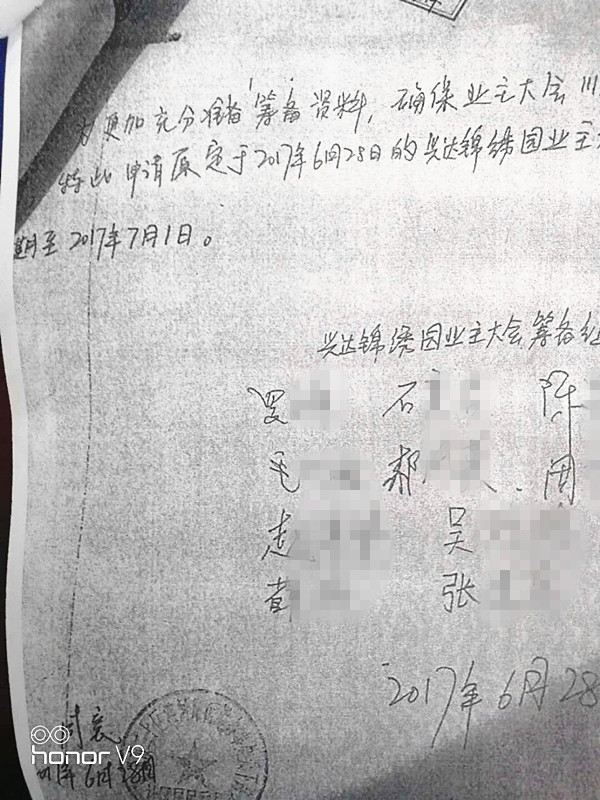 为更加充分准备筹备资料，确保业主大会川
特此申请原定于2017年6月28日的兴达锦绣园业主
期至2017年7月1日。
兴达锦绣园业主大会筹备组
罗 石 陈
毛 郝 周
赵 吴
黄 张
2017年6月28
honor V9